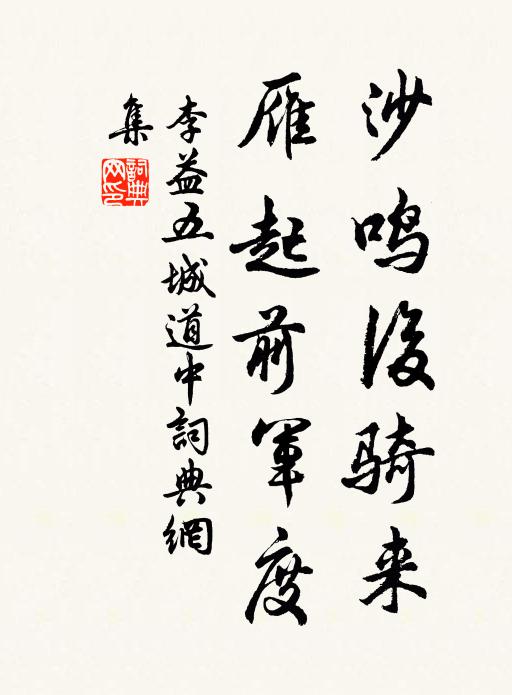 沙鸣後騎来
雁起前軍度
李益五城道中詞典網
集
詞典网印